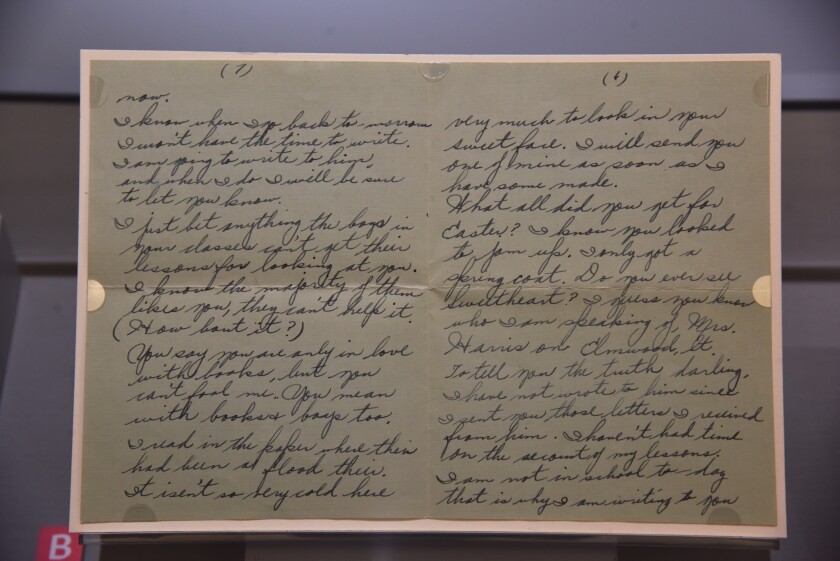 (6)
very much to look in your
sweet face. I will send you
one of mine as soon as I
have some made.
What all did you get for
Easter? I know you looked
to jam up. I only got a
spring coat. Do you ever see
sweetheart? I guess you know
who I am speaking of, Mrs.
Harris on Elmwood, St.
To tell you the truth, darling,
I have not wrote to him since
I sent you those letters I received
from him. I haven't had time
on the account of my lessons.
I am not in school to-day
that is why I am writing to you
(7)
now.
I know when I go back to-morrow
I won't have the time to write.
I am going to write to him,
and when I do I will be sure
to let you know.
I just bet anything the boys in
your classes can't get their
lessons for looking at you.
I know the majority of them
likes you, they can't help it.
(How bout it?)
You say you are only in love
with books, but you
can't fool me. You mean
with books & boys too.
I read in the paper where their
had been a flood their.
It isen't so very cold here
B